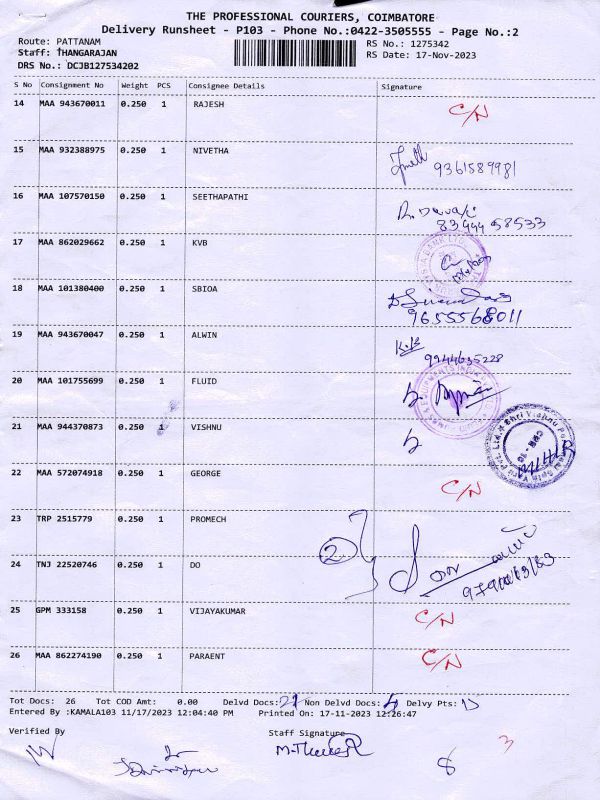 THE PROFESSIONAL COURIERS, COIMBATORE
Delivery Runsheet - P103 - Phone No.:0422-3505555 - Page No.:2
Route: PATTANAM
RS No.: 1275342
Staff: THANGARAJAN
RS Date: 17-Nov-2023
DRS No.: DCJB127534202
S No Consignment No Weight PCS Consignee Details Signature
14 MAA 943670011 0.250 1 RAJESH C/N
15 MAA 932388975 0.250 1 NIVETHA
9361589981
16 MAA 107570150 0.250 1 SEETHAPATHI
83444 58533
17 MAA 862029662 0.250 1 KVB
18 MAA 101380400 0.250 1 SBIOA
9655568011
19 MAA 943670047 0.250 1 ALWIN
9944635228
20 MAA 101755699 0.250 1 FLUID
21 MAA 944370873 0.250 1 VISHNU
22 MAA 572074918 0.250 1 GEORGE C/N
23 TRP 2515779 0.250 1 PROMECH
2
24 TNJ 22520746 0.250 1 DO
25 GPM 333158 0.250 1 VIJAYAKUMAR C/N
26 MAA 862274190 0.250 1 PARAENT C/N
Tot Docs: 26 Tot COD Amt: 0.00 Delvd Docs: Non Delvd Docs: 4 Delvy Pts:
Entered By :KAMALA103 11/17/2023 12:04:40 PM Printed On: 17-11-2023 12:26:47
Verified By Staff Signature
8 3